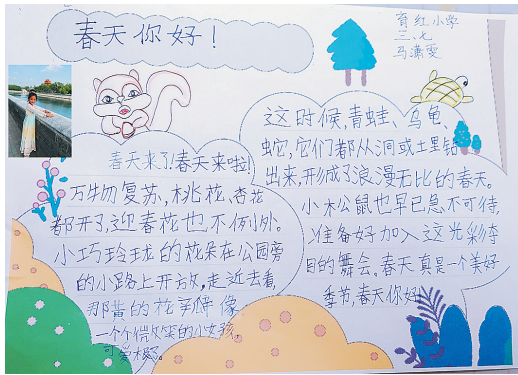 春天你好！
育红小学
三、七
马潇雯
春天来了！春天来啦！
万物复苏，桃花、杏花
都开了，迎春花也不例外。
小巧玲珑的花朵在公园旁
的小路上开放，走近去看，
那黄的花朵像
一个个微笑的小女孩，
可爱极了。
这时候，青蛙、乌龟、
蛇，它们都从洞或土里钻
出来，形成了浪漫无比的春天。
小松鼠也早已急不可待，
准备好加入这光彩夺
目的舞会。春天真是个美好
季节，春天你好！